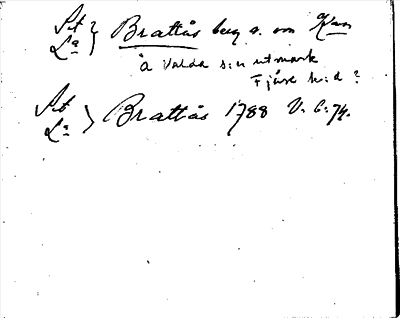 St } Brattås berg s. om
La
å Valda s:n utmark
Fjäre h:d ?
St } Brattås 1788 V. 6:74.
La